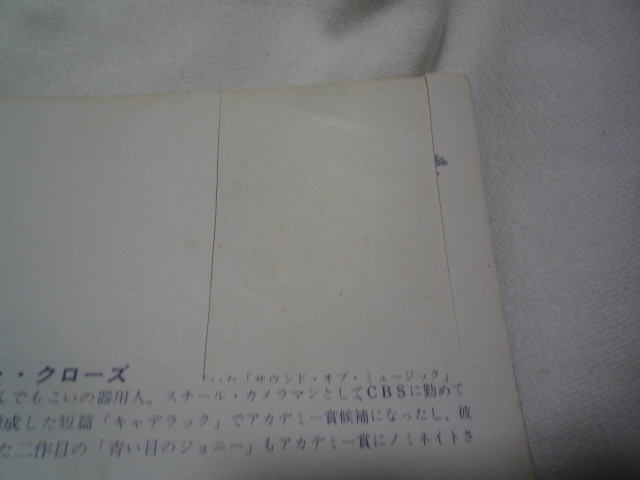 ・クローズ
「サウンド・オブ・ミュージック」
んでもこいの器用人。スチール・カメラマンとしてCBSに勤めて
成した短篇「キャデラック」でアカデミー賞候補になったし、彼
た二作目の「青い目のジョニー」もアカデミー賞にノミネイトさ